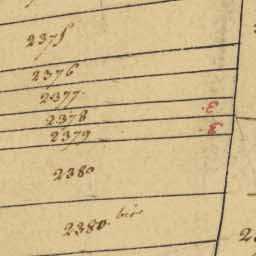 2375
2376
2377
2378
2379
2380
2380 bis